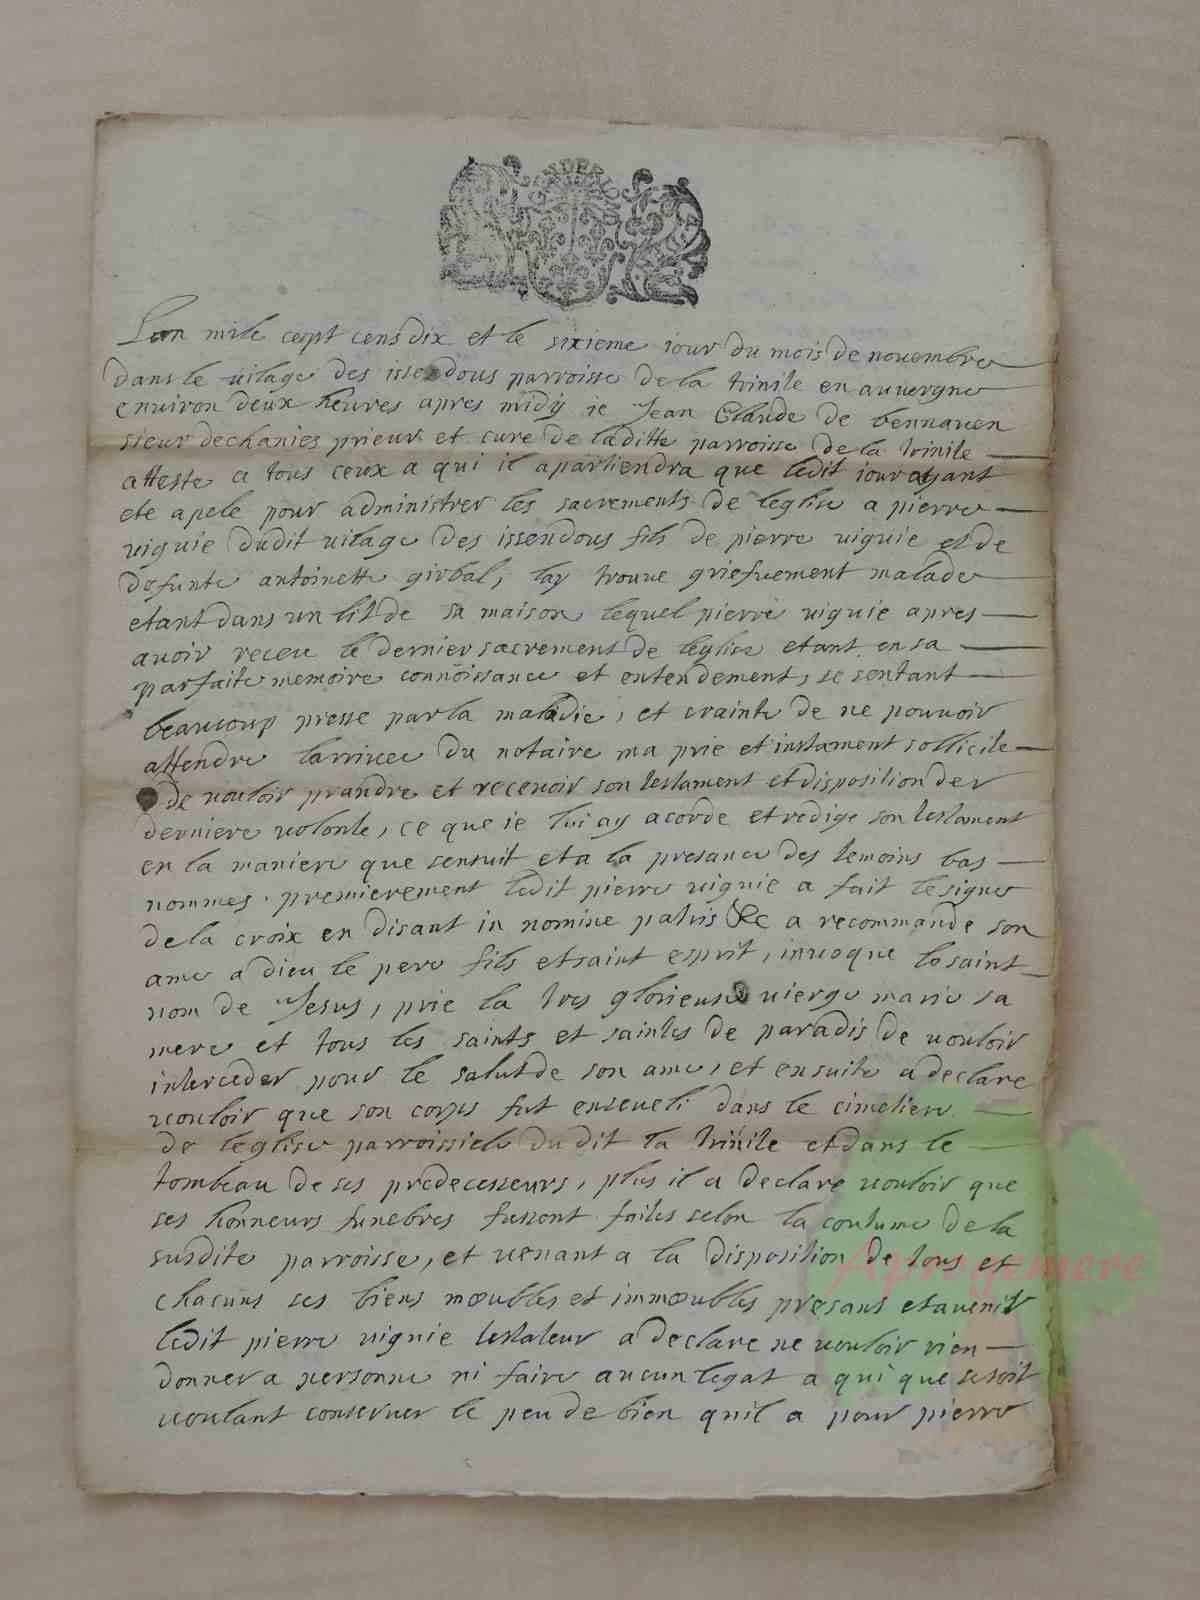 Lan mile cept cens dix et le sixieme iour du mois de novembre
dans le vilage des issendous parroisse de la trinite en auvergne
environ deux heures apres midÿ ie Jean Claude de bennaven
sieur dechanies prieur et cure de laditte parroisse de la trinite
atteste a tous ceux a qui il apartiendra que ledit iour ayant
ete apele pour administrer les sacrements de leglise a pierre
viguie dudit vilage des issendous fils de pierre viguie et de
defunte antoinette girbal, lay trouve griefvement malade
etant dans un lit de sa maison lequel pierre viguie apres
avoir receu le dernier sacrement de leglise etant en sa
parfaite memoire connoissance et entendement, se sentant
beaucoup presse par la maladie, et crainte de ne pouvoir
attendre larrivee du notaire ma prie et instament sollicite
de vouloir prandre et recevoir son testament et disposition de
derniere volonte, ce que ie lui ay acorde et redige son testament
en la maniere que sensuit et a la presance des temoins bas
nommes. premierement ledit pierre viguie a fait le signe
de la croix en disant in nomine patris &c a recommande son
ame a dieu le pere fils et saint esprit, invoque le saint
nom de Jesus, prie la tres glorieuse vierge marie sa
mere et tous les saints et saintes de paradis de vouloir
interceder pour le salut de son ame, et ensuite a declare
vouloir que son corps fut enseveli dans le cimetiere
de leglise parroissiele du dit la trinite et dans le
tombeau de ses predecesseurs, plus il a declare vouloir que
ses honneurs funebres fussont faites selon la coutume de la
susdite parroisse, et venant a la disposition de tous et
chacuns ses biens mœubles et immœubles presans et avenir
ledit pierre viguie testateur a declare ne vouloir rien
donner a personne ni faire aucun legat a qui que se soit
voulant conserver le peu de bien quil a pour pierre
Aprogemere